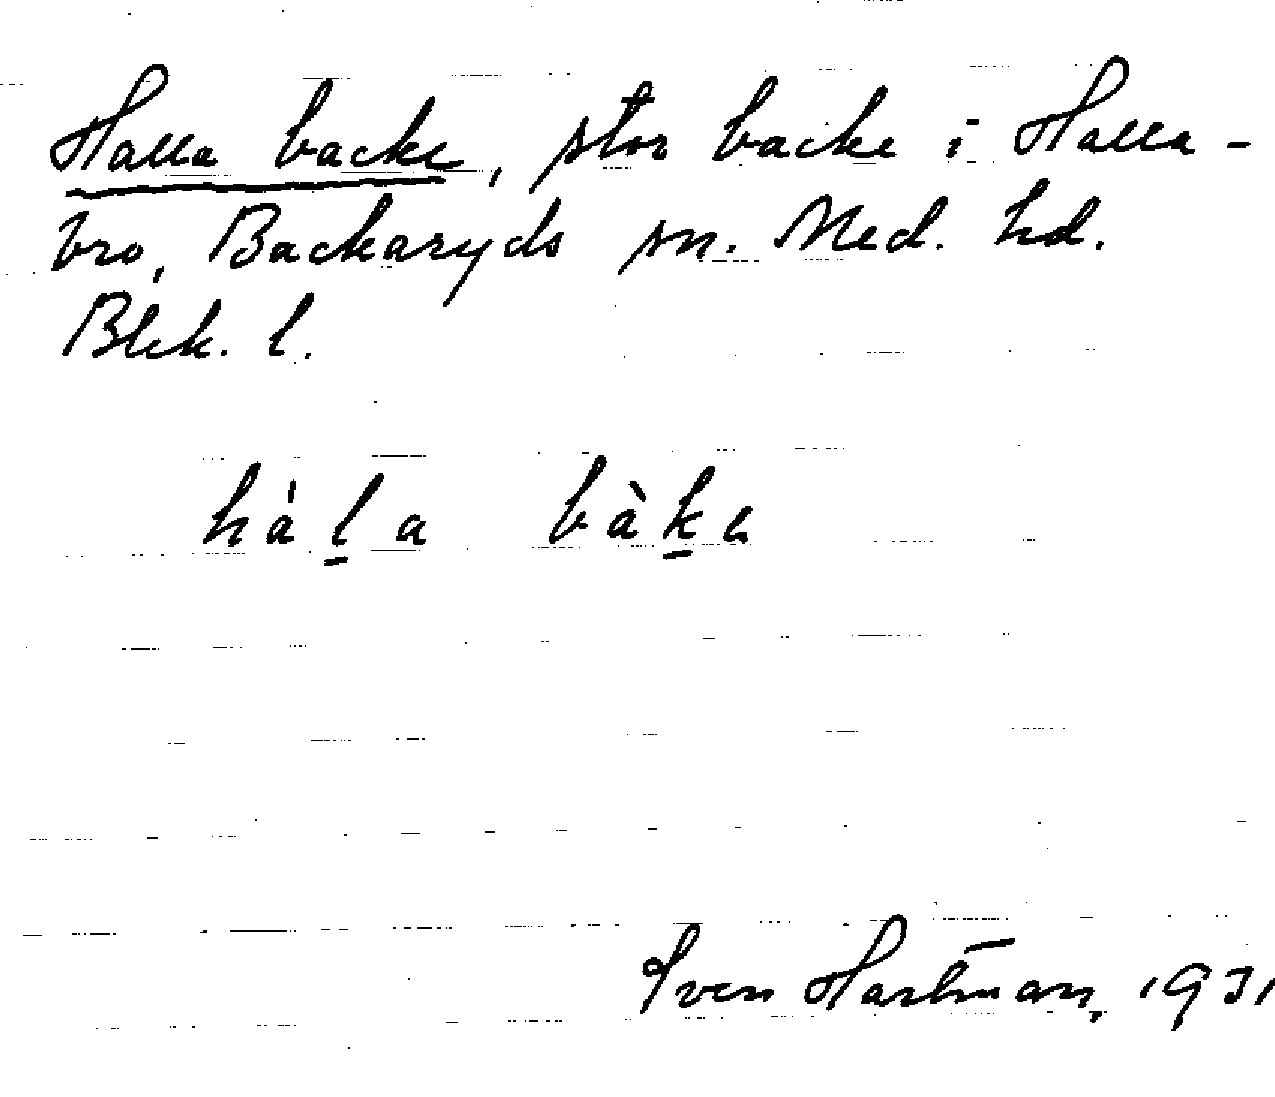 Halla backe, stor backe i Halla-
bro, Backaryds sn. Med. hd.
Blek. l.
háḻa bàḵe
Sven Hartman, 1931